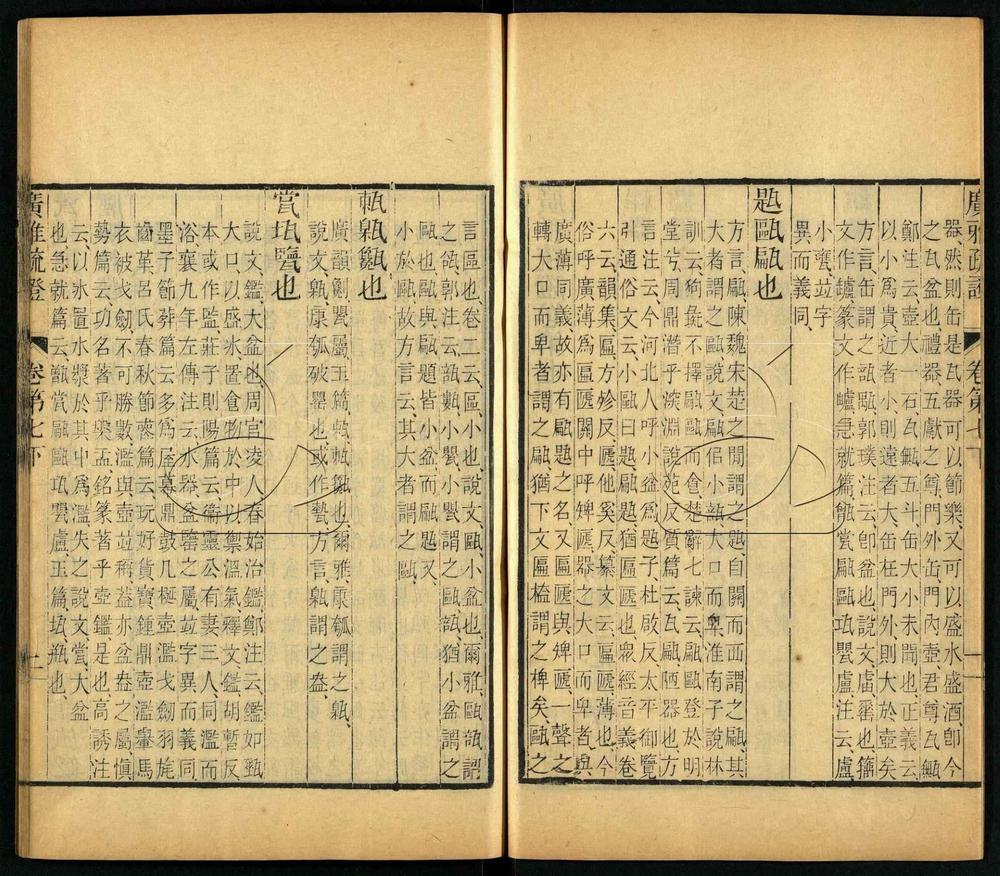 廣雅疏證 卷第七下
器然則缶是瓦器可以節樂又可以盛水盛酒卽今
之瓦盆也禮器五獻之尊門外缶門內壺君尊瓦甒
鄭注云壺大一石瓦甒五斗缶大小未聞也正義云
以小爲貴近者小則遠者大缶在門外則大於壺矣
方言缶謂之瓿甌郭璞注云卽盆也說文㽀罌也籀
文作鑪篆文作罏急就篇甀甞甂甌瓨罌盧注云盧
小甕竝字
異而義同
題甌甂也
方言甂陳魏宋楚之閒謂之題自關而西謂之甂其
大者謂之甌說文甂似小瓿大口而卑淮南子說林
訓云狗彘不擇甂甌而食楚辭七諫云甂甌登於明
堂兮周鼎潛乎深淵說苑反質篇云瓦甂陋器也方
言注云今河北人呼小盆爲題子杜啟反太平御覽
引通俗文云小甌曰題甂題猶匾㔸也衆經音義卷
六云韻集匾方殄反㔸他奚反纂文云匾㔸薄也今
俗呼廣薄爲匾㔸關中呼㼰㔸器之大口而卑者與
廣薄同義故亦有甂題之名又匾㔸與㼰㔸一聲之
轉大口而卑者謂之甂猶下文匾榼謂之椑矣甌之
言區也卷二云區小也說文甌小盆也爾雅甌瓿謂
之瓵郭注云瓿甊小罌小罌謂之甌瓿猶小盆謂之
甌也甌與甂題皆小盆而甂題又
小於甌故方言云其大者謂之甌
甈也
廣韻
說文甈康瓠破罌也或作𤮅方言甈謂之盎
甞瓨鑑也
說文鑑大盆也周官凌人春始治鑑鄭注云鑑如甀
大口以盛冰置食物於中以禦溫氣釋文鑑胡暫反
本或作監莊子則陽篇云衞靈公有妻三人同濫而
浴襄九年左傳注云水器盆鑑之屬竝字異而義同
墨子節葬篇云多爲屋幕鼎鼓几梴壺濫戈劒羽旄
齒革呂氏春秋節喪篇云玩好貨寶鍾鼎壺濫轝馬
衣被戈劒不可勝數濫與壺竝稱蓋亦盆盎之屬愼
勢篇云功名著乎槃盂銘篆著乎壺鑑是也高誘注
云以冰置水漿於其中爲濫失之說文甞大盆
也急就篇云甀甞甂甌瓨罌盧玉篇瓨瓶也
廣雅疏證 卷第七下